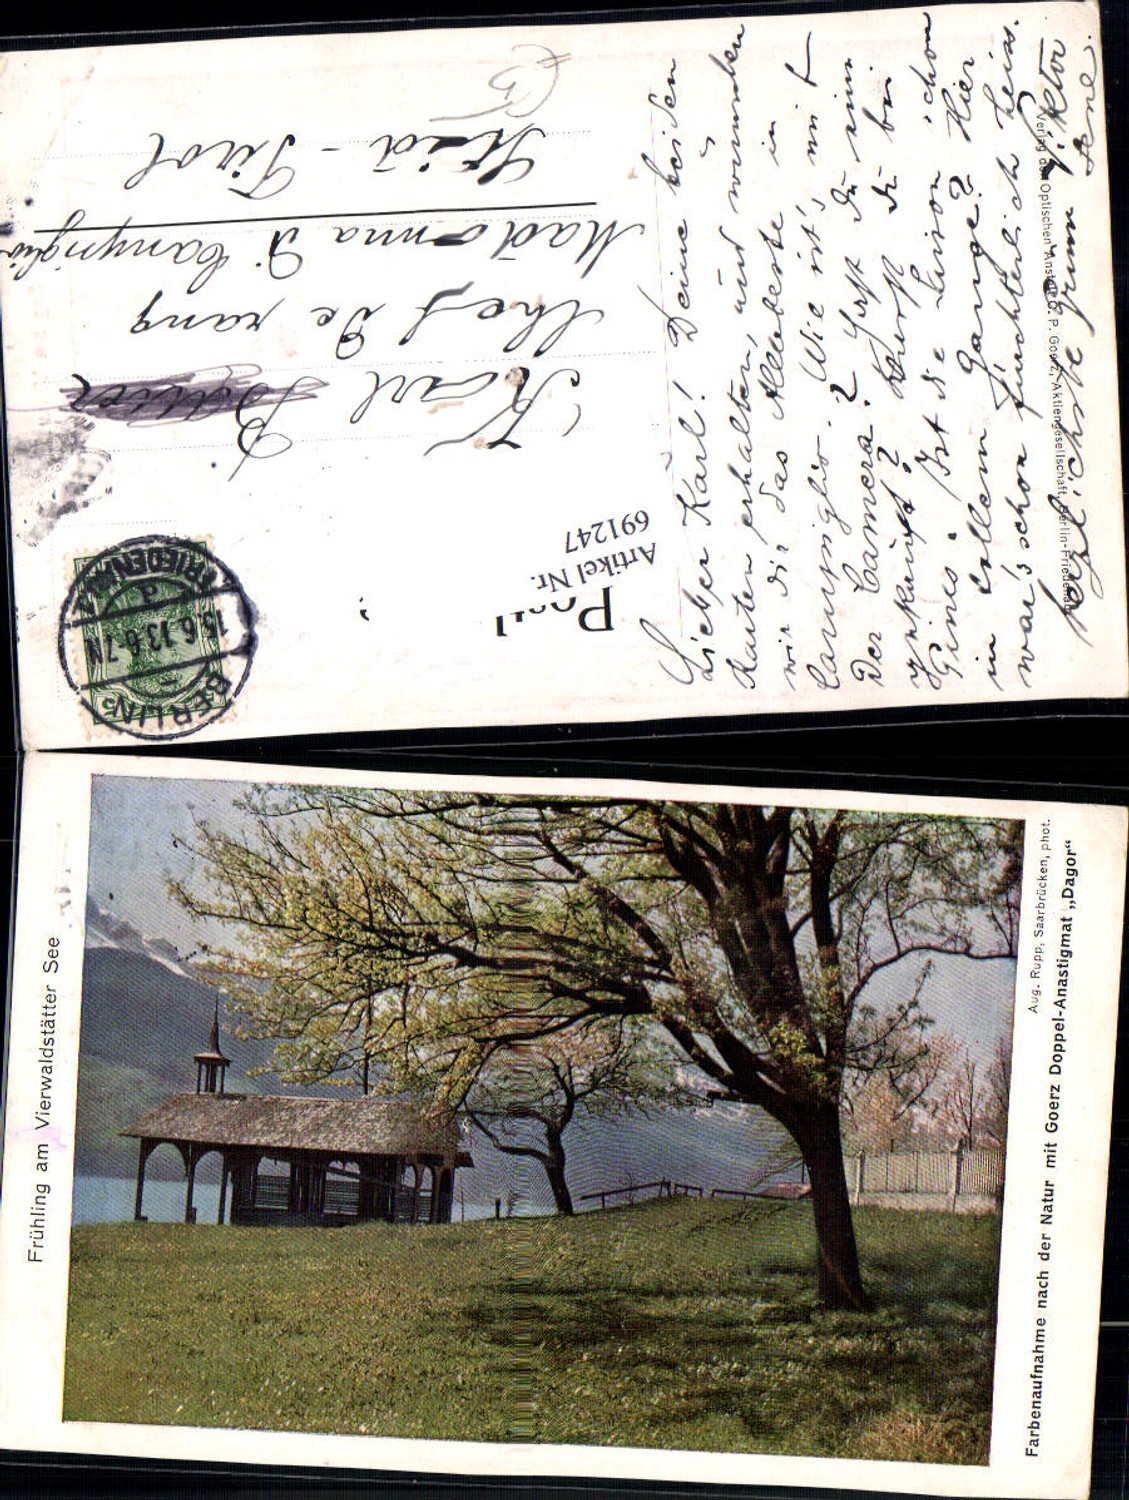 Postk
Artikel Nr.
691247
Karl
Chef de rang
Madonna di Campiglio
Süd-Tirol
BERLIN
15.6.13.6-7N
FRIEDENAU
5
Lieber Karl! Deine beiden
Karten erhalten, und wünschen
wir dir das Allerbeste in
Campiglio. Wie ist's mit
der Camera? Hast du eine
gekauft? warst du bei
Ist die Saison schon
in vollem Gange? Hier
war's schon fürchterlich heiss.
herzlichste Grüsse Viktor
Verlag der Optischen Anstalt C. P. Goerz, Aktiengesellschaft, Berlin-Friedenau
Frühling am Vierwaldstätter See
Aug. Rupp, Saarbrücken, phot.
Farbenaufnahme nach der Natur mit Goerz Doppel-Anastigmat „Dagor“